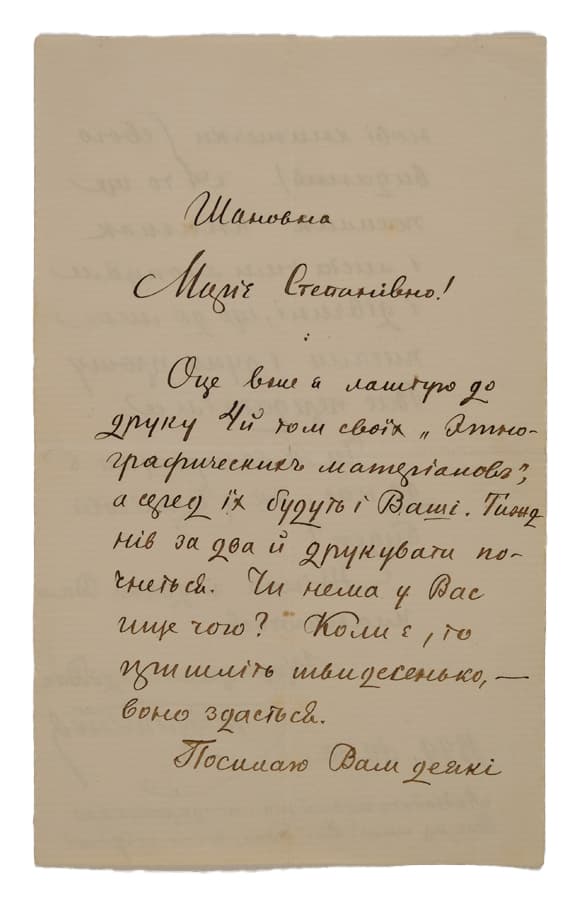 Шановна
Маріє Степанівно!
Оце вже й лаштую до
друку 4й том своїх „Этно-
графическихъ матеріаловъ",
а серед їх будуть і Ваші. Тижд
нів за два й друкувати по-
чнеться. Чи нема у Вас
ище чого? Коли є, то
пришліть швидесенько, —
воно здасться.
Посилаю Вам деякі